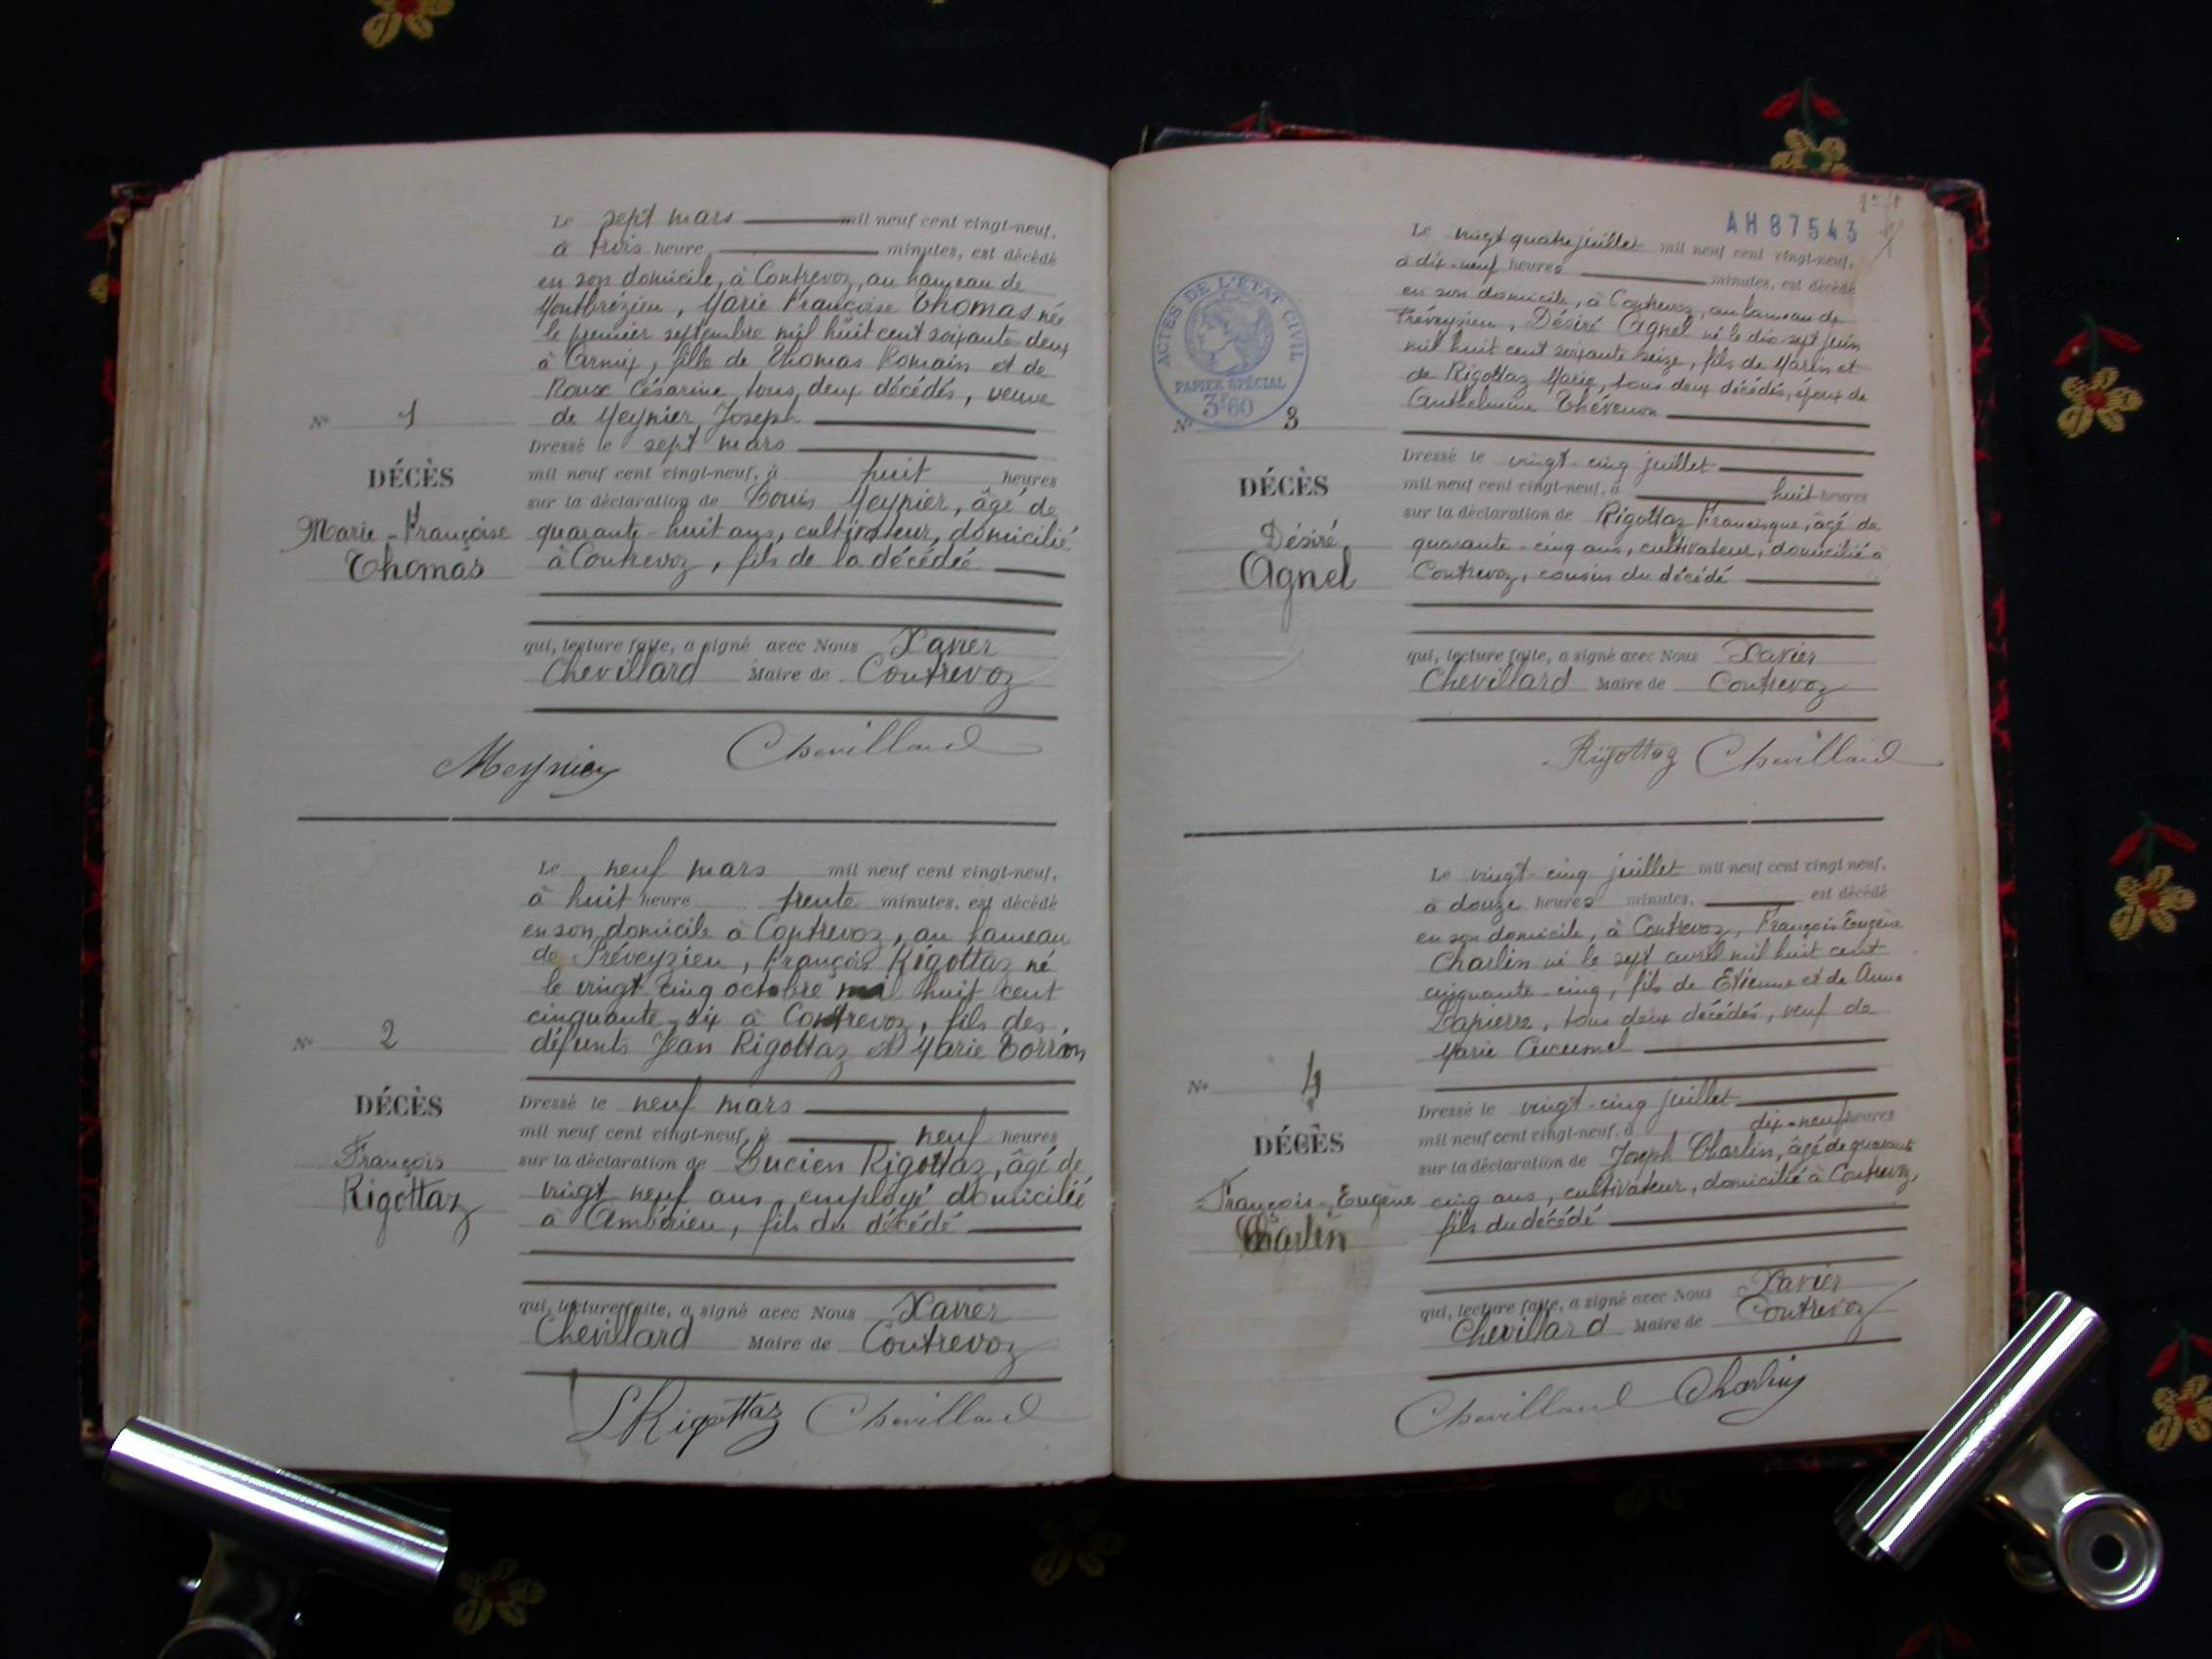 Le sept mars mil neuf cent vingt-neuf,
à trois heure minutes, est décédé
en son domicile, à Contrevoz, au hameau de
Montbrézieu, Marie Françoise Thomas née
le premier septembre mil huit cent soixante deux
à Armix, fille de Thomas Romain et de
Roux Césarine, tous deux décédés, veuve
de Meynier Joseph
N° 1
Dressé le sept mars
mil neuf cent vingt-neuf, à huit heures
DÉCÈS
sur la déclaration de Louis Meynier, âgé de
Marie-Françoise
quarante-huit ans, cultivateur, domicilié
Thomas
à Contrevoz, fils de la décédée
qui, lecture faite, a signé avec Nous Xavier
Chevillard Maire de Contrevoz
Meynier Chevillard
Le neuf mars mil neuf cent vingt-neuf,
à huit heure trente minutes, est décédé
en son domicile à Contrevoz, au hameau
de Préveyzieu, François Rigottaz né
le vingt cinq octobre mil huit cent
cinquante-six à Contrevoz, fils des
N° 2
défunts Jean Rigottaz et Marie Torron
DÉCÈS
Dressé le neuf mars
mil neuf cent vingt-neuf, à neuf heures
François
sur la déclaration de Lucien Rigottaz, âgé de
Rigottaz
vingt neuf ans, employé domicilié
à Ambérieu, fils du décédé
qui, lecture faite, a signé avec Nous Xavier
Chevillard Maire de Contrevoz
LRigottaz Chevillard
AH87543
Le vingt quatre juillet mil neuf cent vingt-neuf,
à dix-neuf heures minutes, est décédé
en son domicile, à Contrevoz, au hameau de
Préveyzieu, Désiré Agnel né le dix-sept juin
mil huit cent soixante seize, fils de Marin et
de Rigottaz Marie, tous deux décédés, époux de
Anthelmine Thévenon
ACTES DE L'ÉTAT CIVIL
PAPIER SPÉCIAL
3F60
N° 3
Dressé le vingt-cinq juillet
mil neuf cent vingt-neuf, à huit heures
DÉCÈS
sur la déclaration de Rigottaz Francisque, âgé de
Désiré
quarante-cinq ans, cultivateur, domicilié à
Agnel
Contrevoz, cousin du décédé
qui, lecture faite, a signé avec Nous Xavier
Chevillard Maire de Contrevoz
Rigottaz Chevillard
Le vingt-cinq juillet mil neuf cent vingt-neuf,
à douze heures minutes, est décédé
en son domicile, à Contrevoz, François Eugène
Charlin né le sept avril mil huit cent
cinquante-cinq, fils de Etienne et de Anne
Lapierre, tous deux décédés, veuf de
Marie Cucumel
N° 4
Dressé le vingt-cinq juillet
mil neuf cent vingt-neuf, à dix-neuf heures
DÉCÈS
sur la déclaration de Joseph Charlin, âgé de quarante
François-Eugène
cinq ans, cultivateur, domicilié à Contrevoz,
Charlin
fils du décédé
qui, lecture faite, a signé avec Nous Xavier
Chevillard Maire de Contrevoz
Chevillard Charlin